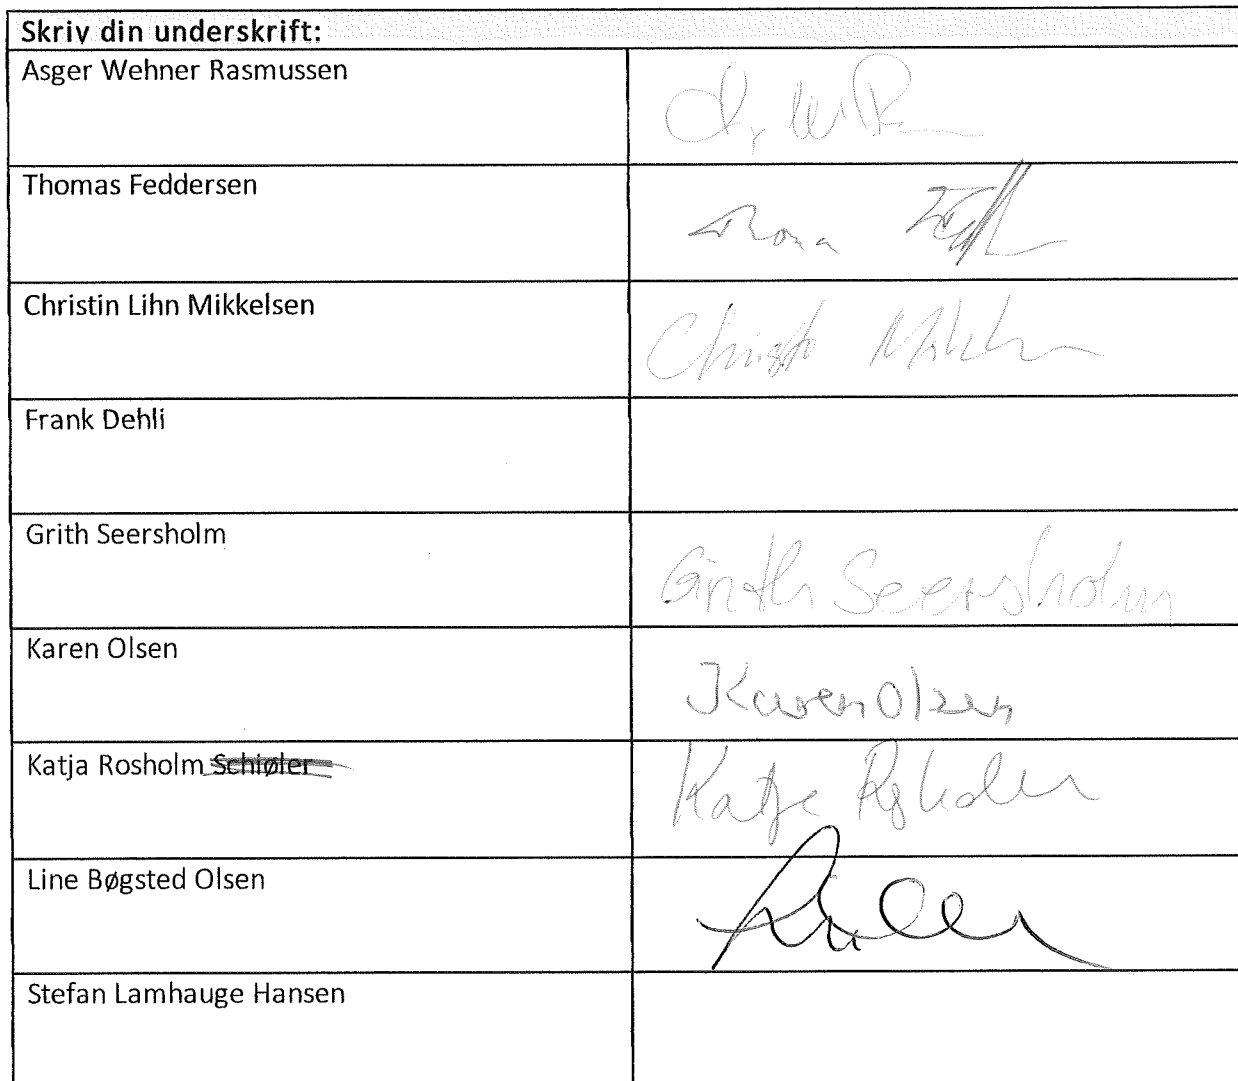 Skriv din underskrift:
Asger Wehner Rasmussen
Thomas Feddersen
Christin Lihn Mikkelsen
Frank Dehli
Grith Seersholm
Grith Seersholm
Karen Olsen
Karen Olsen
Katja Rosholm Schiøler
Katja
Line Bøgsted Olsen
Stefan Lamhauge Hansen